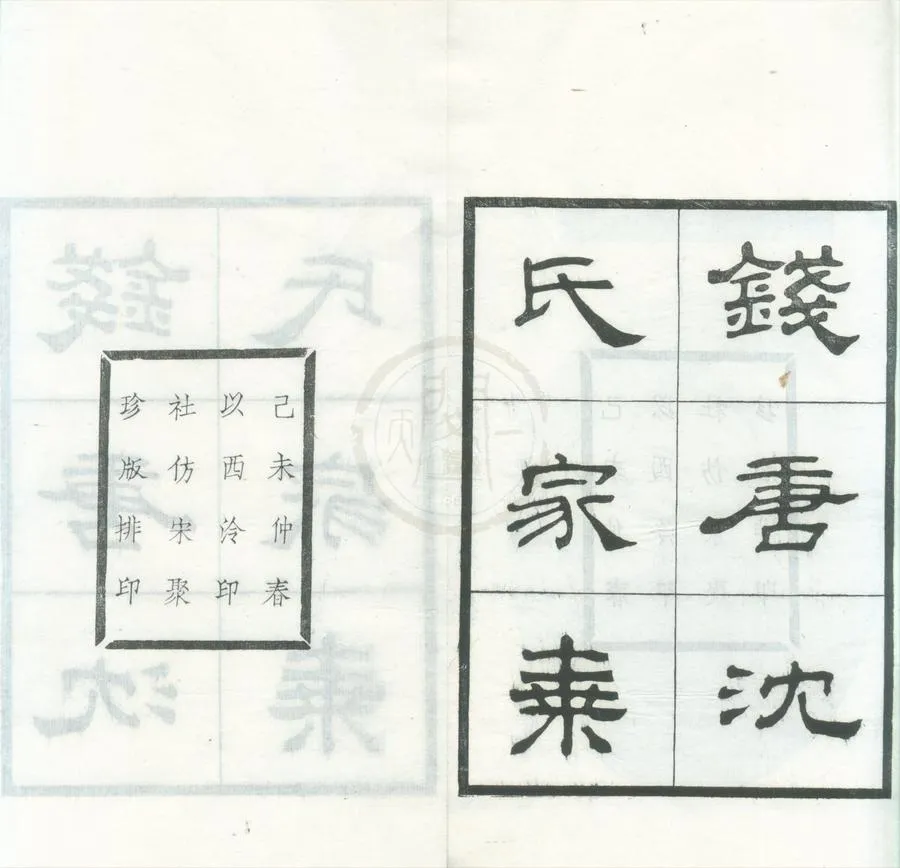 錢唐沈
氏家乘
己未仲春
以西泠印
社仿宋聚
珍版排印